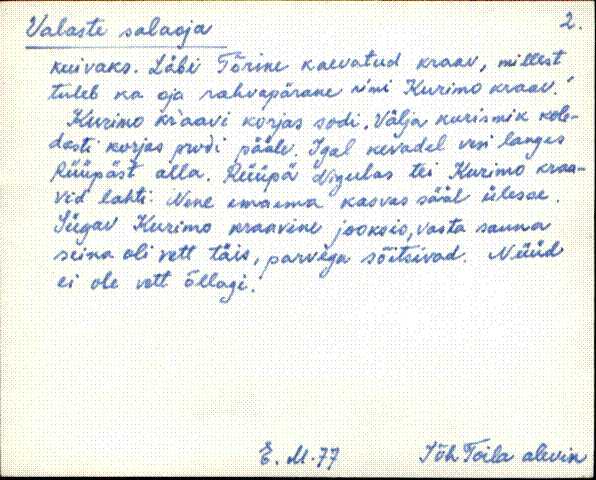 Valaste salaoja 2.
kuivaks. Läbi Törine kaevatud kraav, millest
tuleb ka oja rahvapärane nimi Kurimo kraav.
Kurimo kraavi korjas sodi. Välja kurismik kole-
dasti korjas prodi pääle. Igal kevadel vesi langes
Rüüpäst alla. Rüüpä Nigulas tei Kurimo kraa-
vid lahti. Nene emaema kasvas sääl ülesse.
Sügav Kurimo kraavine jooksis, vasta sauna
seina oli vett täis, parvega sõitsivad. Nüüd
ei ole vett õllagi.
E. M. 77 Jõh Toila alevik